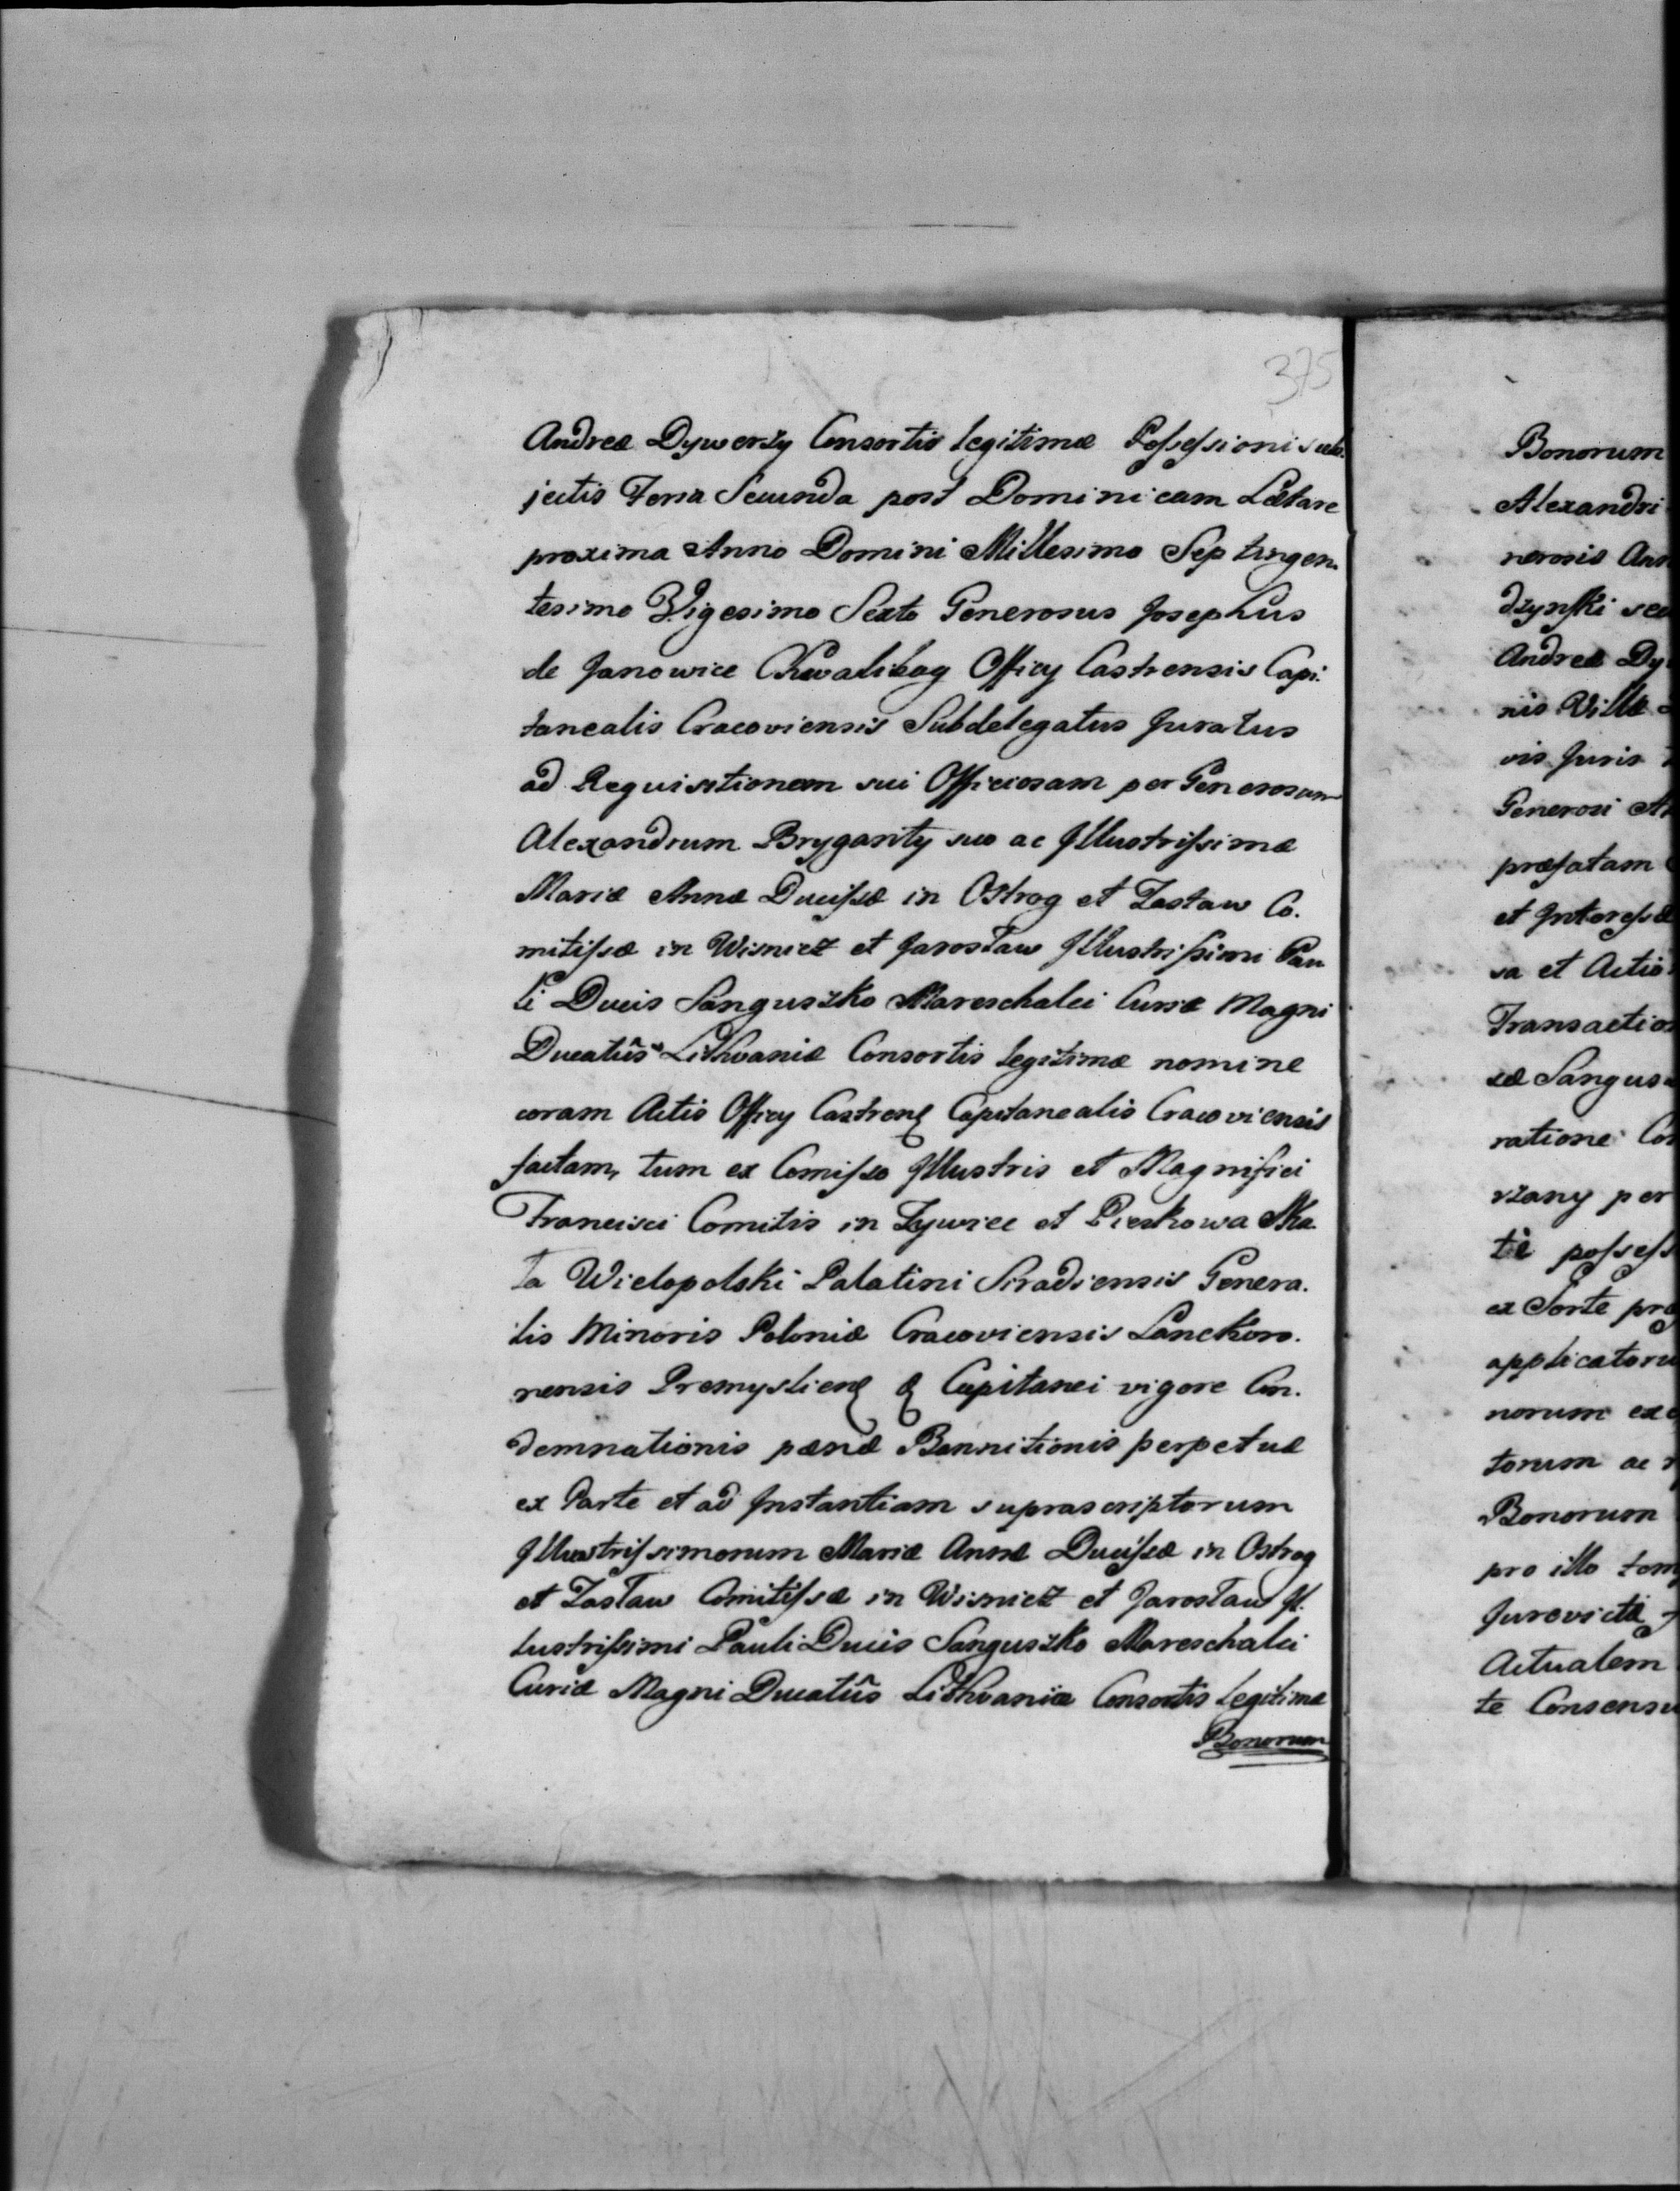 375
Andreæ Dywerzy Consortis legitimæ Possessioni sub-
jectis Feria Secunda post Dominicam Lætare
proxima Anno Domini Millesimo Septingen-
tesimo Vigesimo Sexto Generosus Josephus
de Janowice Chwalibog Officy Castrensis Capi-
tanealis Cracoviensis Subdelegatus Juratus
ad Requisitionem sui Officiosam per Generosum
Alexandrum Bryganty suo ac Illustrissimæ
Mariæ Annæ Ducissæ in Ostrog et Zasław Co-
mitissæ in Wisnicz et Jarosław Illustrissimi Pau
li Ducis Sanguszko Mareschalci Curiæ Magni
Ducatûs Lithvaniæ Consortis legitimæ nomine
coram Actis Officy Castren Capitanealis Cracoviensis
factam, tum ex Comisso Illustris et Magnifici
Francisci Comitis in Zywiec et Pieskowa Ska
ła Wielopolski Palatini Siradiensis Genera-
lis Minoris Poloniæ Cracoviensis Lanckoro-
nensis Premyslien & Capitanei vigore Con-
demnationis pænæ Bannitionis perpetuæ
ex Parte et ad Instantiam suprascriptorum
Illustrissimorum Mariæ Annæ Ducissæ in Ostrog
et Zasław Comitissæ in Wisnicz et Jarosław Il-
lustrissimi Pauli Ducis Sanguszko Mareschalci
Curiæ Magni Ducatûs Lithvaniæ Consortis legitimæ
Bonorum
Bonorum
Alexandri
nerosis
dzynski
Andreæ Dy
nis Villæ
vis Juris
Generosi
præfatam
et Interesse
sa et Actio
Transactio
sæ Sangus
ratione
rzany per
tè possess
ex Sorte
applicatoru
norum
torum ac
Bonorum
pro illo
Jurevictæ
Actualem
te Consensu